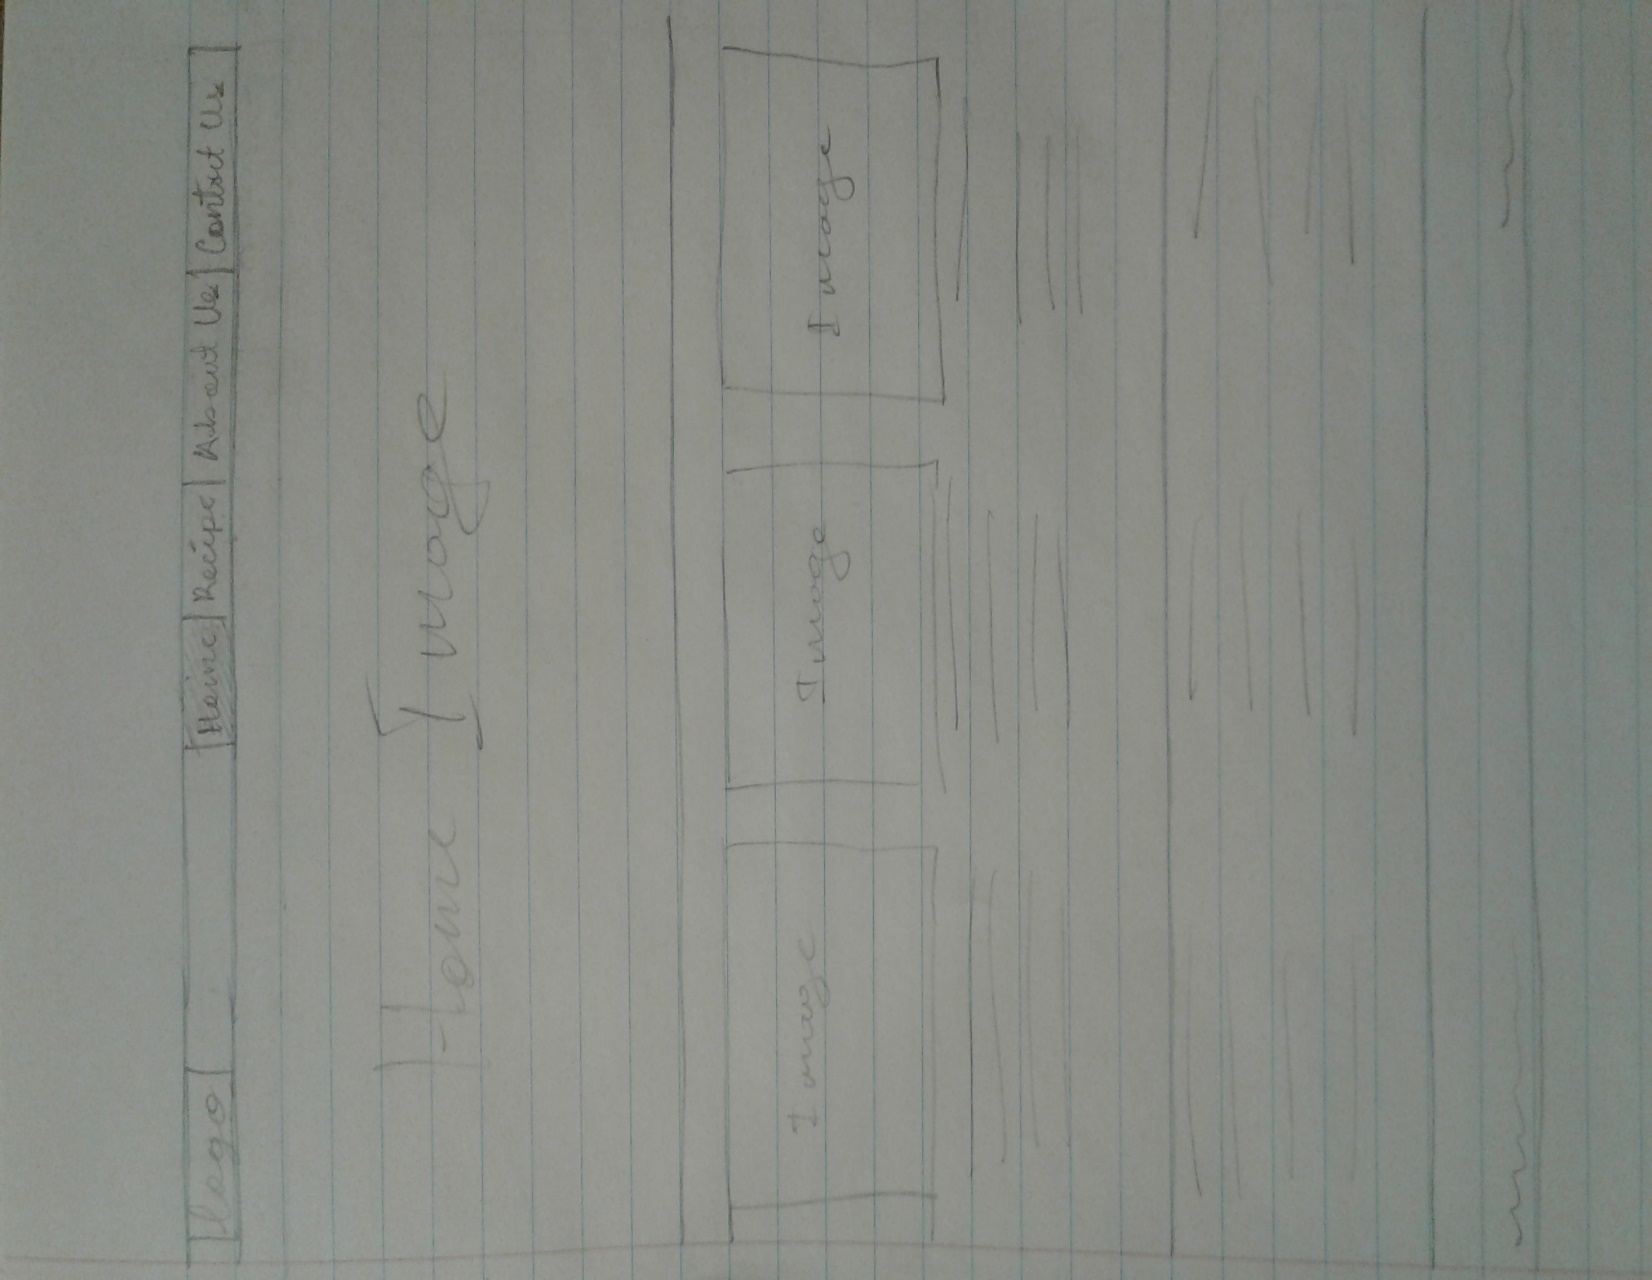 Logo Home Recipe About Us Contact Us
Home Image
Image Image Image